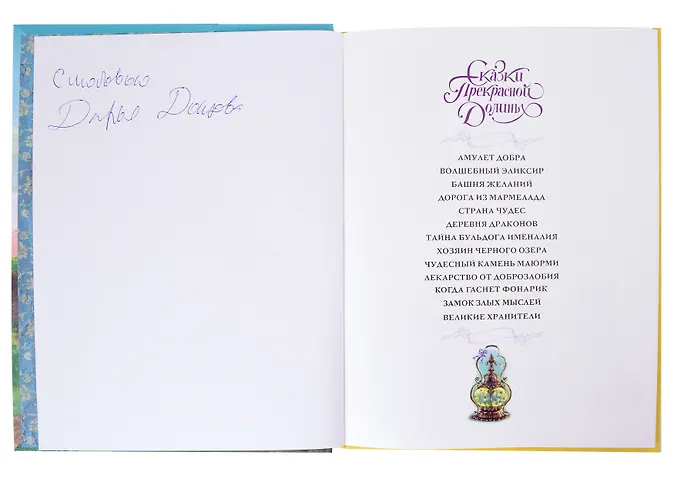 С любовью
Дарья Донцова
Сказки
Прекрасной
Долины
АМУЛЕТ ДОБРА
ВОЛШЕБНЫЙ ЭЛИКСИР
БАШНЯ ЖЕЛАНИЙ
ДОРОГА ИЗ МАРМЕЛАДА
СТРАНА ЧУДЕС
ДЕРЕВНЯ ДРАКОНОВ
ТАЙНА БУЛЬДОГА ИМЕНАЛИЯ
ХОЗЯИН ЧЕРНОГО ОЗЕРА
ЧУДЕСНЫЙ КАМЕНЬ МАЮРМИ
ЛЕКАРСТВО ОТ ДОБРОЗЛОБИЯ
КОГДА ГАСНЕТ ФОНАРИК
ЗАМОК ЗЛЫХ МЫСЛЕЙ
ВЕЛИКИЕ ХРАНИТЕЛИ